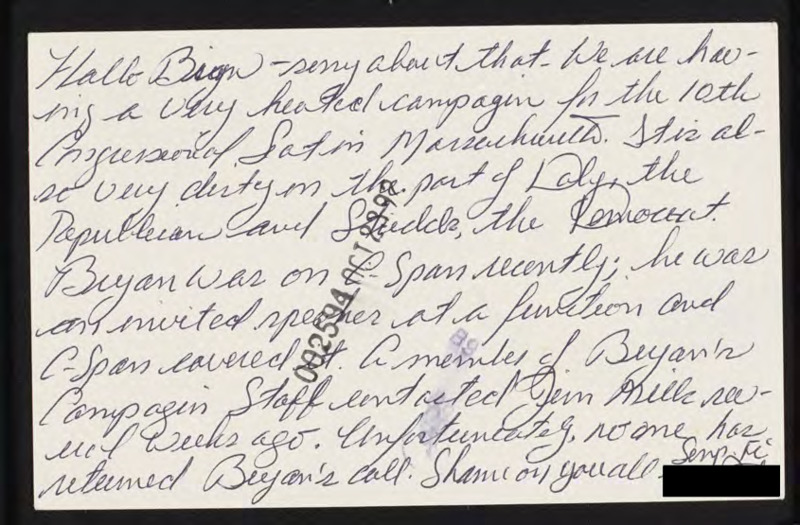 Hallo Brian - sorry about that. We are hav-
ing a very heated campagin for the 10th
Congressional Seat in Massachusetts. It is al-
so very dirty on the part of Daly, the
Republican and Studds, the Democrat.
Bryan was on C Span recently; he was
an invited speaker at a function and
C-Span covered it. A member of Bryan's
Campagin Staff contacted Jim Mills sev-
eral weeks ago. Unfortunately, no one has
returned Bryan's call. Shame on you all. Semp. Fi
002594 OCT 23 92